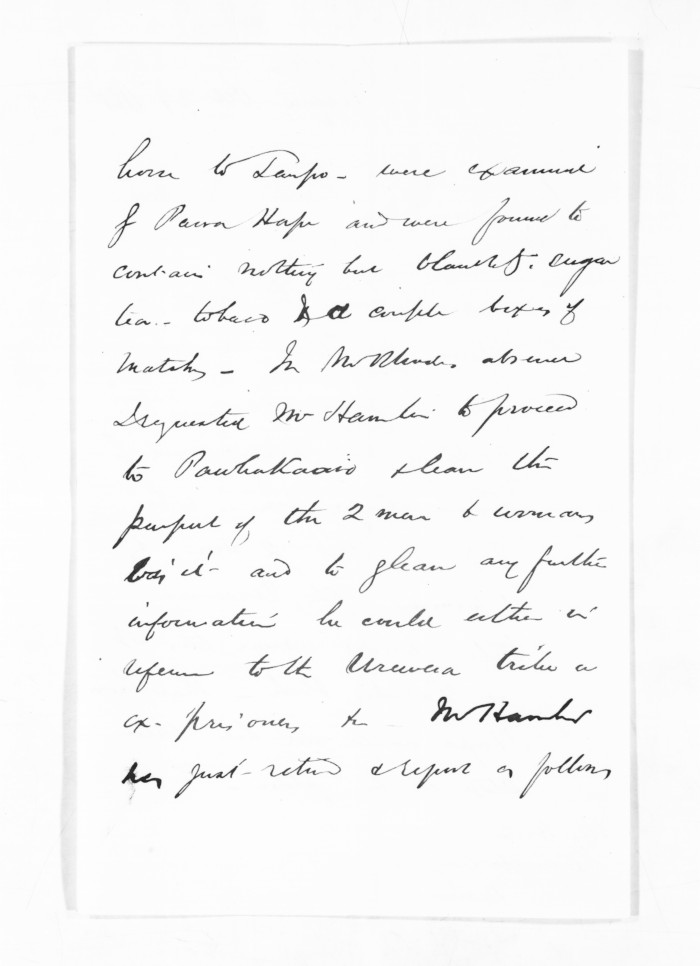 horse to Taupo - were examined
of Paora Hape and were found to
contain nothing but blankets. sugar
tea - tobaco & a couple boxes of
matches - In Mr Rhodes absence
I requested Mr Hamlin to proceed
to & learn the
purport of the 2 men & womans
visit - and to glean any further
information he could either in
reference to the Urewera tribe or
ex-prisoners &c - Mr Hamlin
has just returned & reports as follows